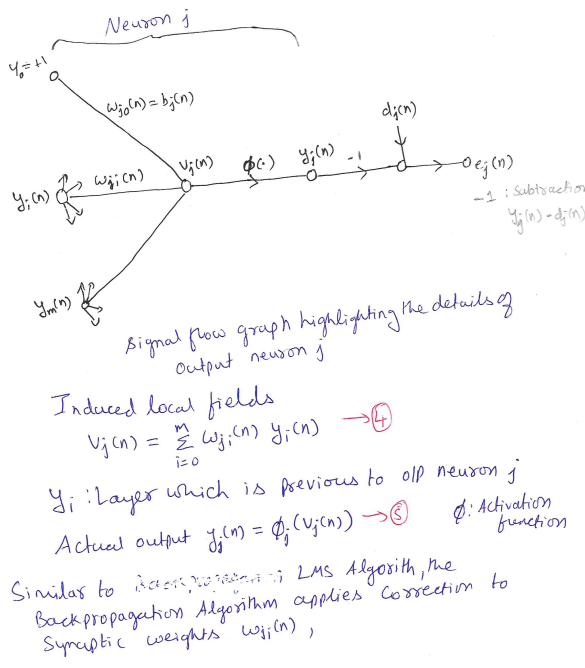 Neuron j
y₀=+1
wj₀(n) = bj(n)
dj(n)
vj(n) ϕ(·) yj(n) -1
yi(n) wji(n) ej(n)
-1 : Subtraction
yj(n) - dj(n)
ym(n)
signal flow graph highlighting the details of
output neuron j
Induced local fields
Vj(n) = Σ(i=0 to m) wji(n) yi(n) → ④
yi : Layer which is previous to o/p neuron j
Actual output yj(n) = ϕj(vj(n)) → ⑤ ϕ: Activation
function
Similar to LMS Algorith, the
Backpropagation Algorithm applies correction to
Synaptic weights wji(n),